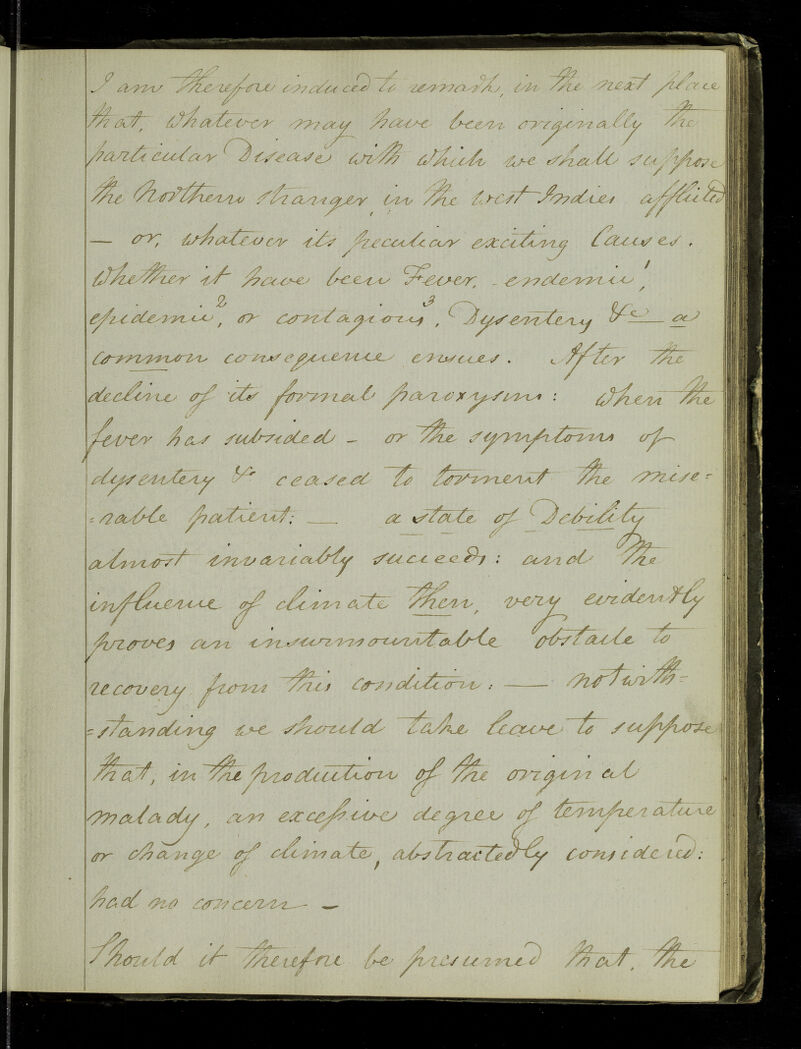 I am therefore induced to remark, in the next place
that, whatever may have been originally the
particular Disease with which we shall suppose
the Northern stranger, in the West Indies afflicted
— or, whatever its peculiar exciting Causes.
Whether it have been Fever, - endemic¹,
epidemic², or contagious³, Dysentery &c — a
common consequence ensues. After the
decline of its formal paroxysms: when the
fever has subsided — or the symptoms of
dysentery &c ceased to torment the mise=
=rable patient: — a state of Debility
almost invariably succeeds: and the
influence of climate then, very evidently
proves an insurmountable obstacle to
recovery from this condition: — notwith=
=standing we should take leave to suppose
that, in the production of the original
malady, an excessive degree of temperature
or change of climate, abstractedly considered:
had no concern —
Should it therefore be presumed that, the